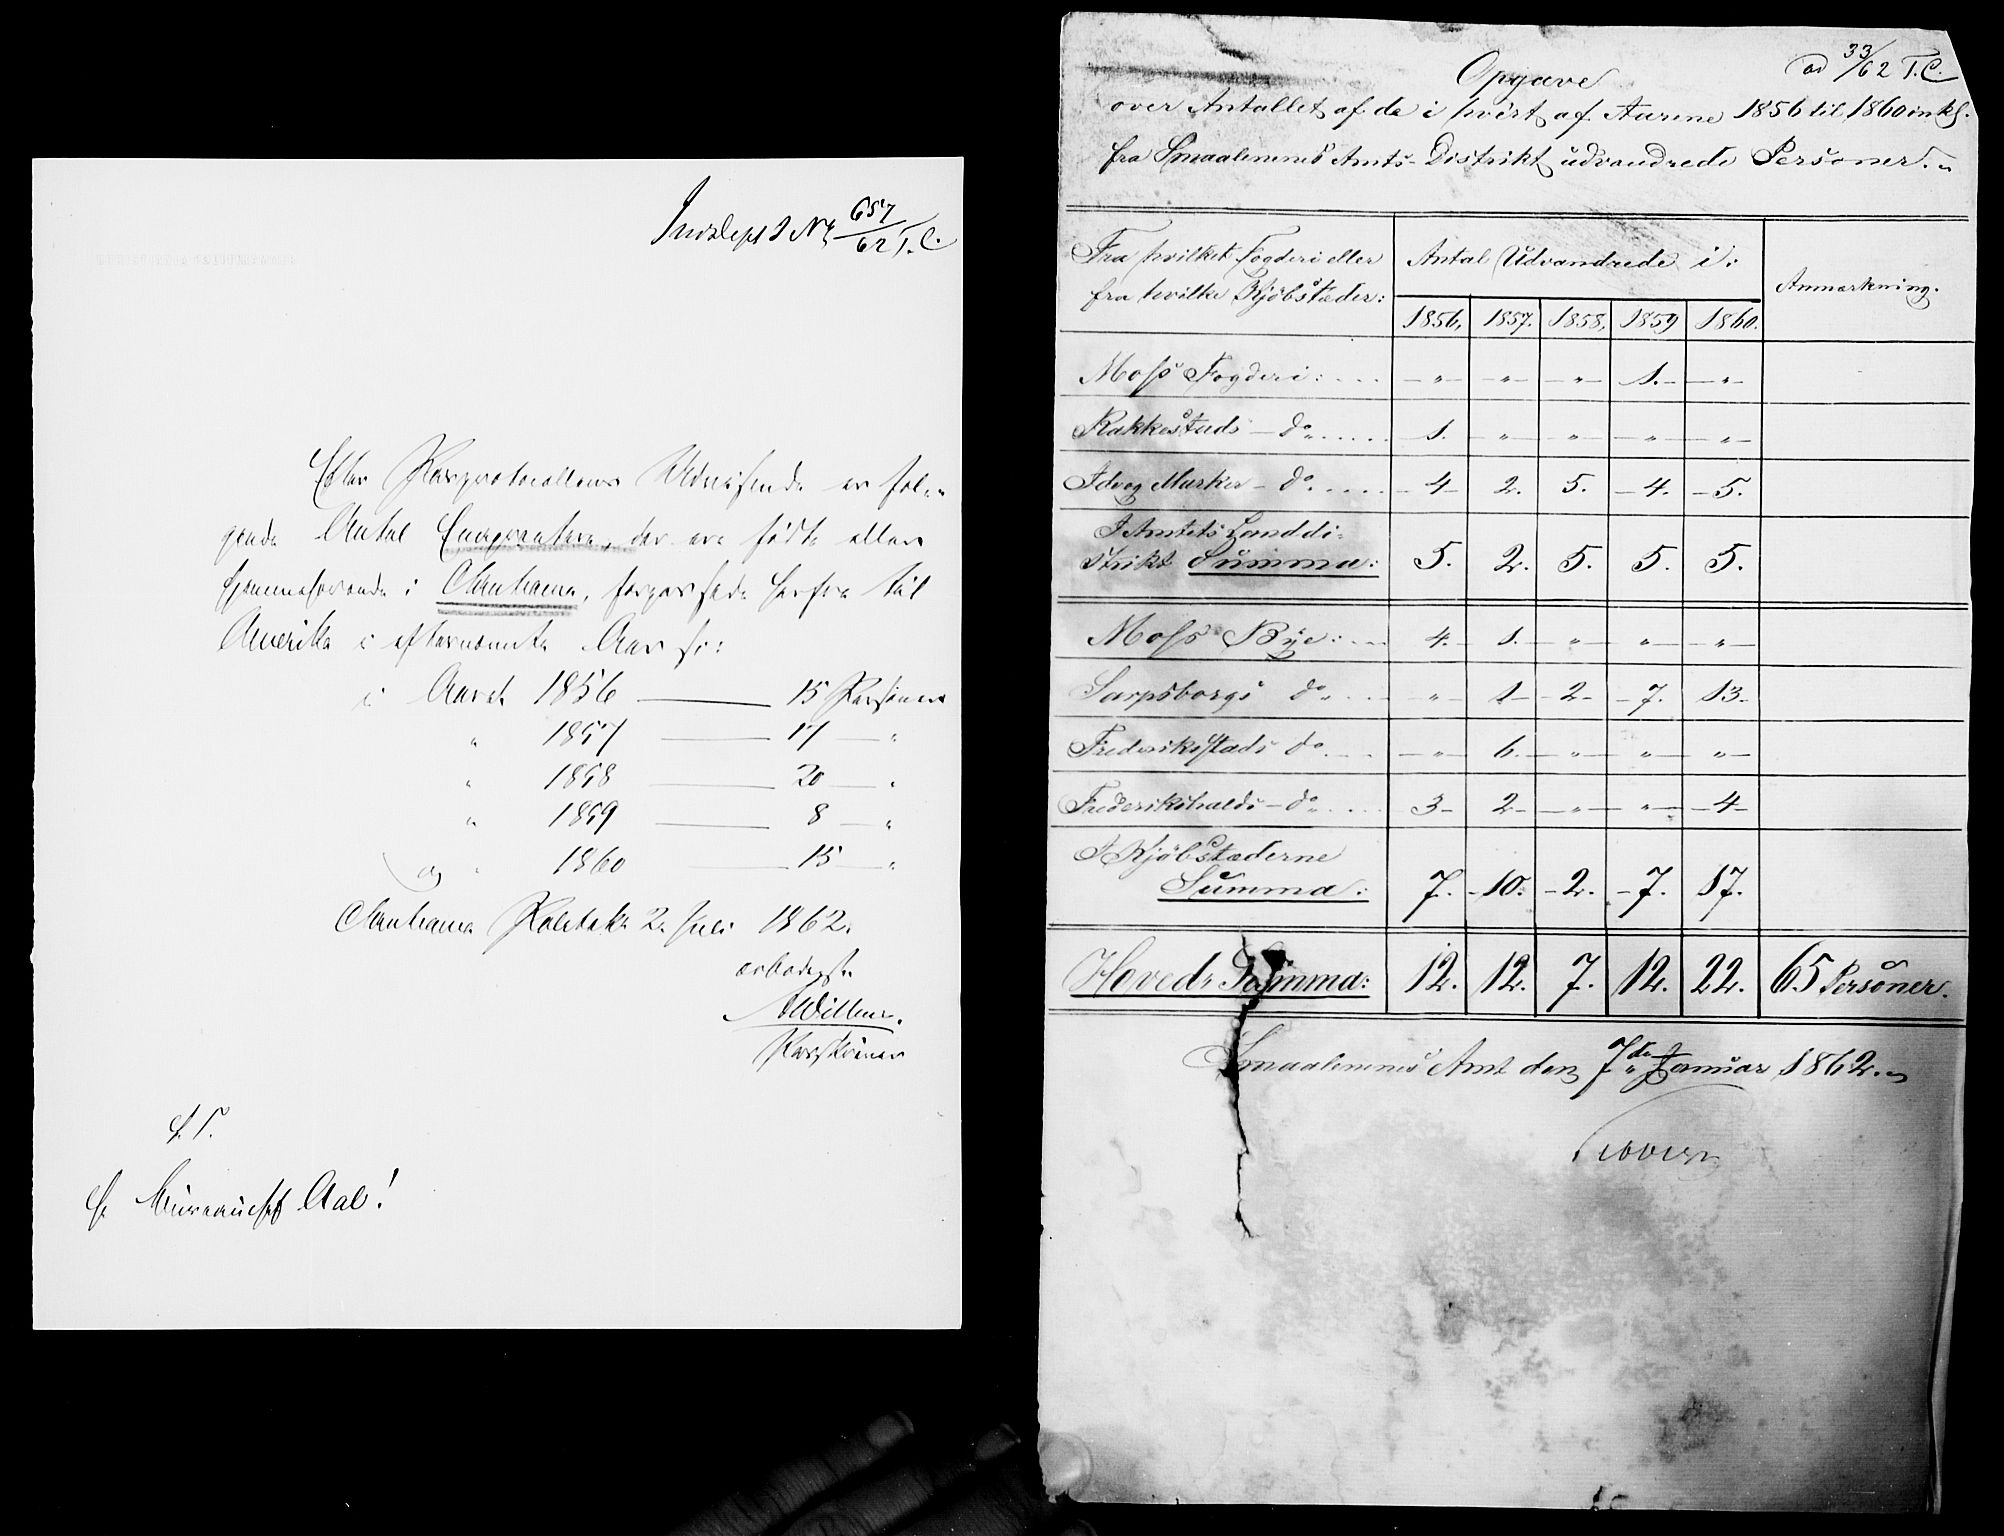 657/62 T.C.
Efter Passprotocollens Udvisende er føl-
gende Antal Emigranter, der ere fødte eller
hjemmehørende i Christiania, herfra til
Amerika i efternævnte Aar
i Aaret 1856 — 15 Personer
" 1857 — 17 — "
" 1858 — 20 — "
" 1859 — 8 — "
og " 1860 — 15 — "
Christiania 2 Juli 1862.
ærbødigst
S. T.
Hr. Bureauchef Aal!
Opgave
ad 33/62 T.C.
over Antallet af de i hvert af Aarene 1856 til 1860 inkl.
fra Smaalenenes Amts-Distrikt udvandrede Personer.
Fra hvilket Fogderi eller
fra hvilke Kjøbstæder:
Antal Udvandrede i:
Anmærkning.
1856, 1857. 1858, 1859 1860.
Moss Fogderi: .... — " — — " — — " — 1. — — " —
Rakkestads — do ..... 1. " " " "
Id og Marker — do ..... 4 2. 5. 4. 5.
I Amtets Landdi-
strikt Summa: 5. 2. 5. 5. 5.
Moss Bye: ... 4. 1. " " "
Sarpsborgs do .... " 1 2 7. 13
Frederikstads do .... " 6. " " "
Frederikshalds — do .... 3 2 " " 4
I Kjøbstæderne
Summa: 7. 10. 2. 7. 17.
Hoved-Summa: 12. 12. 7. 12. 22. 65 Personer.
Smaalenenes Amt den 7de Januar 1862.